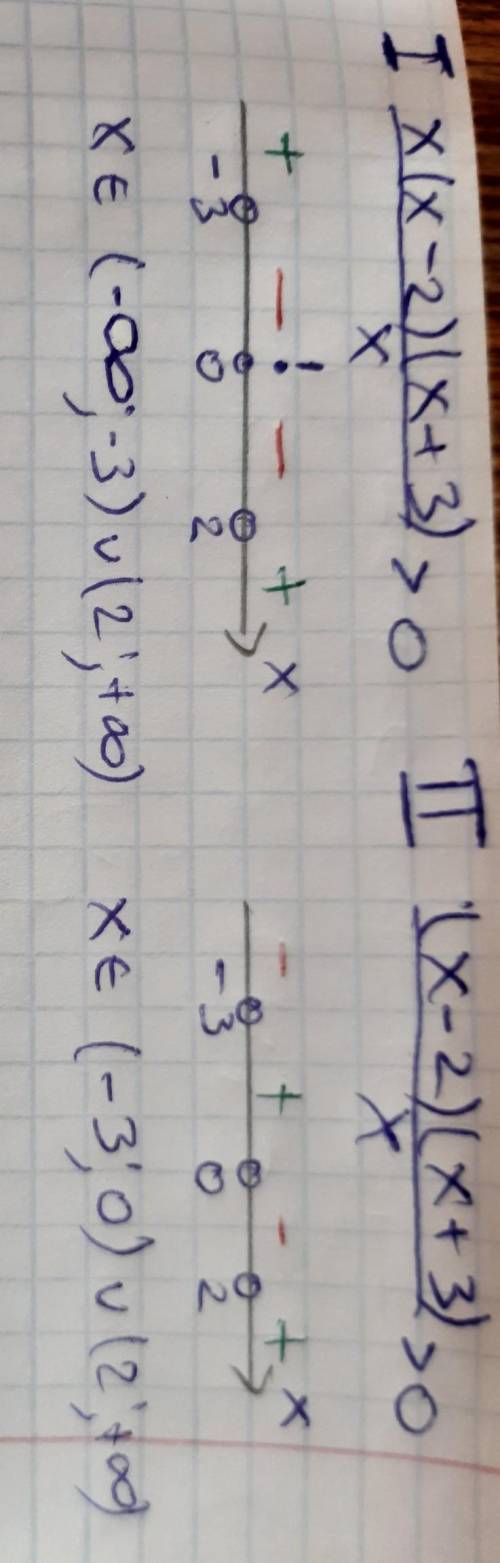 I x(x-2)(x+3)/x > 0
+ − ! − +
-3 0 2 x
x ∈ (-∞; -3) ∪ (2; +∞)
II (x-2)(x+3)/x > 0
− + − +
-3 0 2 x
x ∈ (-3; 0) ∪ (2; +∞)